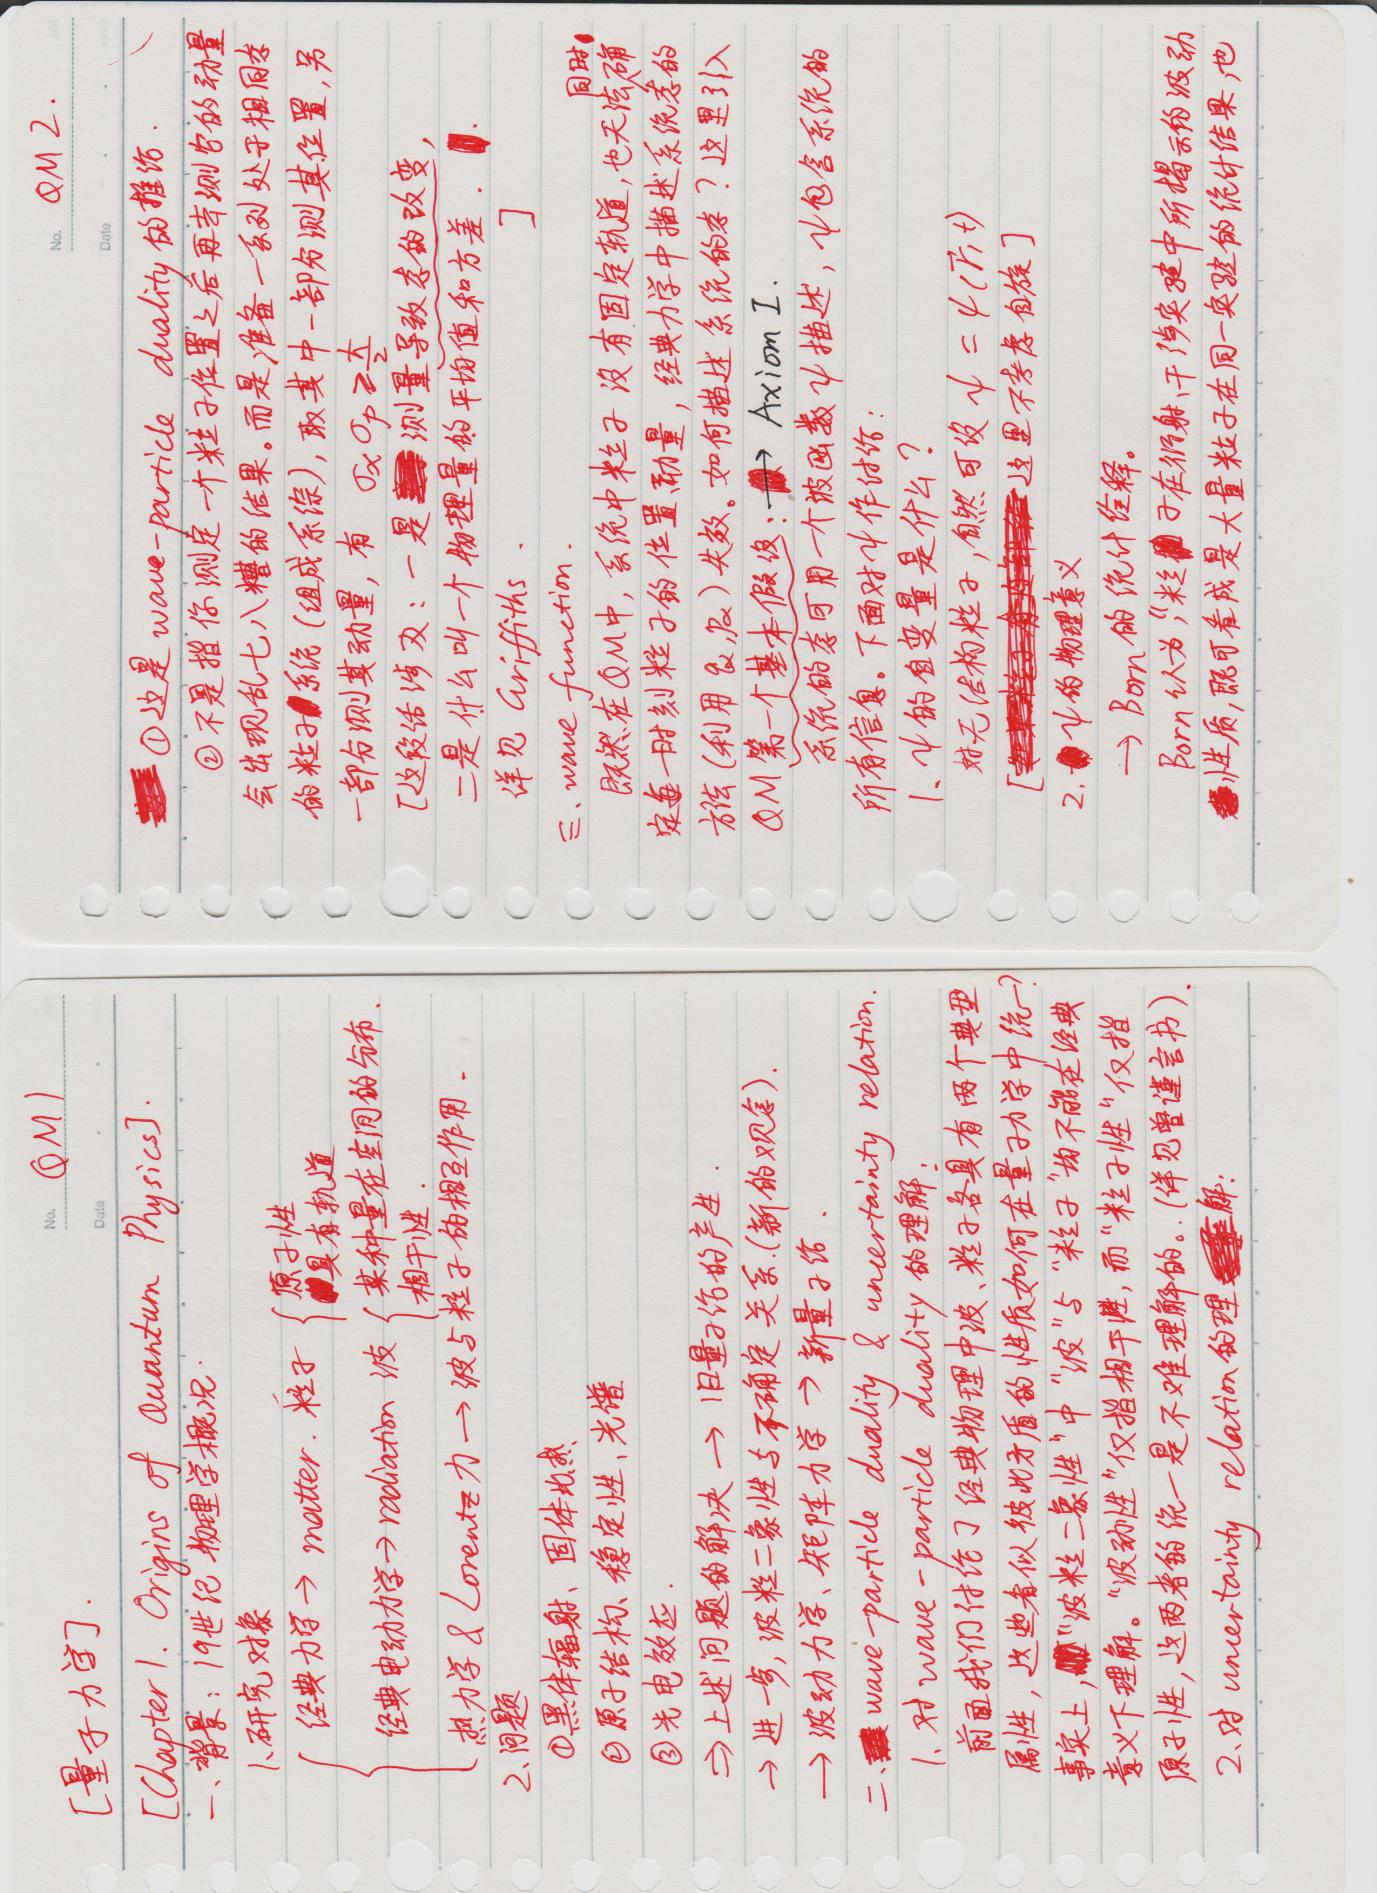 No. QM1
[量子力学].
Date
[Chapter 1. Origins of Quantum Physics].
一、背景：19世纪物理学概况.
1、研究对象
经典力学→ matter. 粒子 { 原子性
具有轨道
经典电动力学→ radiation 波 { 某种量在空间的分布.
相干性.
热力学 & Lorentz力 → 波与粒子的相互作用.
2、问题
①黑体辐射、固体比热
②原子结构、稳定性、光谱
③光电效应.
⇒上述问题的解决 → 旧量子论的产生.
→ 进一步, 波粒二象性与不确定关系.(新的观念).
→ 波动力学、矩阵力学 → 新量子论.
二、wave-particle duality & uncertainty relation.
1、对wave-particle duality的理解:
前面我们讨论了经典物理中波、粒子各具有两个典型
属性, 这些看似彼此矛盾的性质如何在量子力学中统一?
事实上, “波粒二象性”中“波”与“粒子”均不能在经典
意义下理解。“波动性”仅指相干性, 而“粒子性”仅指
原子性, 这两者的统一是不难理解的.. (详见曾谨言书).
2、对uncertainty relation的理解:
No. QM 2.
Date
①这是wave-particle duality的推论.
②不是指你测定一个粒子位置之后再去测它的动量
会出现乱七八糟的结果。而是准备一系列处于相同态
的粒子系统(组成系综), 取其中一部分测其位置, 另
一部分测其动量, 有 σx σp ≥ ħ/2
[这段话涉及: 一是测量导致态的改变,
二是什么叫一个物理量的平均值和方差.
详见 Griffiths. ]
三、wave function.
同时
既然在QM中, 系统中粒子没有固定轨道, 也无法确
定每一时刻粒子的位置、动量, 经典力学中描述系统态的
方法(利用 qα, pα)失效。如何描述系统的态? 这里引入
QM第一个基本假设: → Axiom I.
系统的态可用一个波函数ψ描述, ψ包含系统的
所有信息。下面对ψ作讨论:
1、ψ的自变量是什么?
对无结构粒子, 自然可设 ψ = ψ(r⃗, t)
[这里不考虑自旋]
2. ψ的物理意义
→ Born的统计诠释。
Born认为, “粒子在衍射、干涉实验中所揭示的波动
性质, 既可看成是大量粒子在同一实验的统计结果, 也